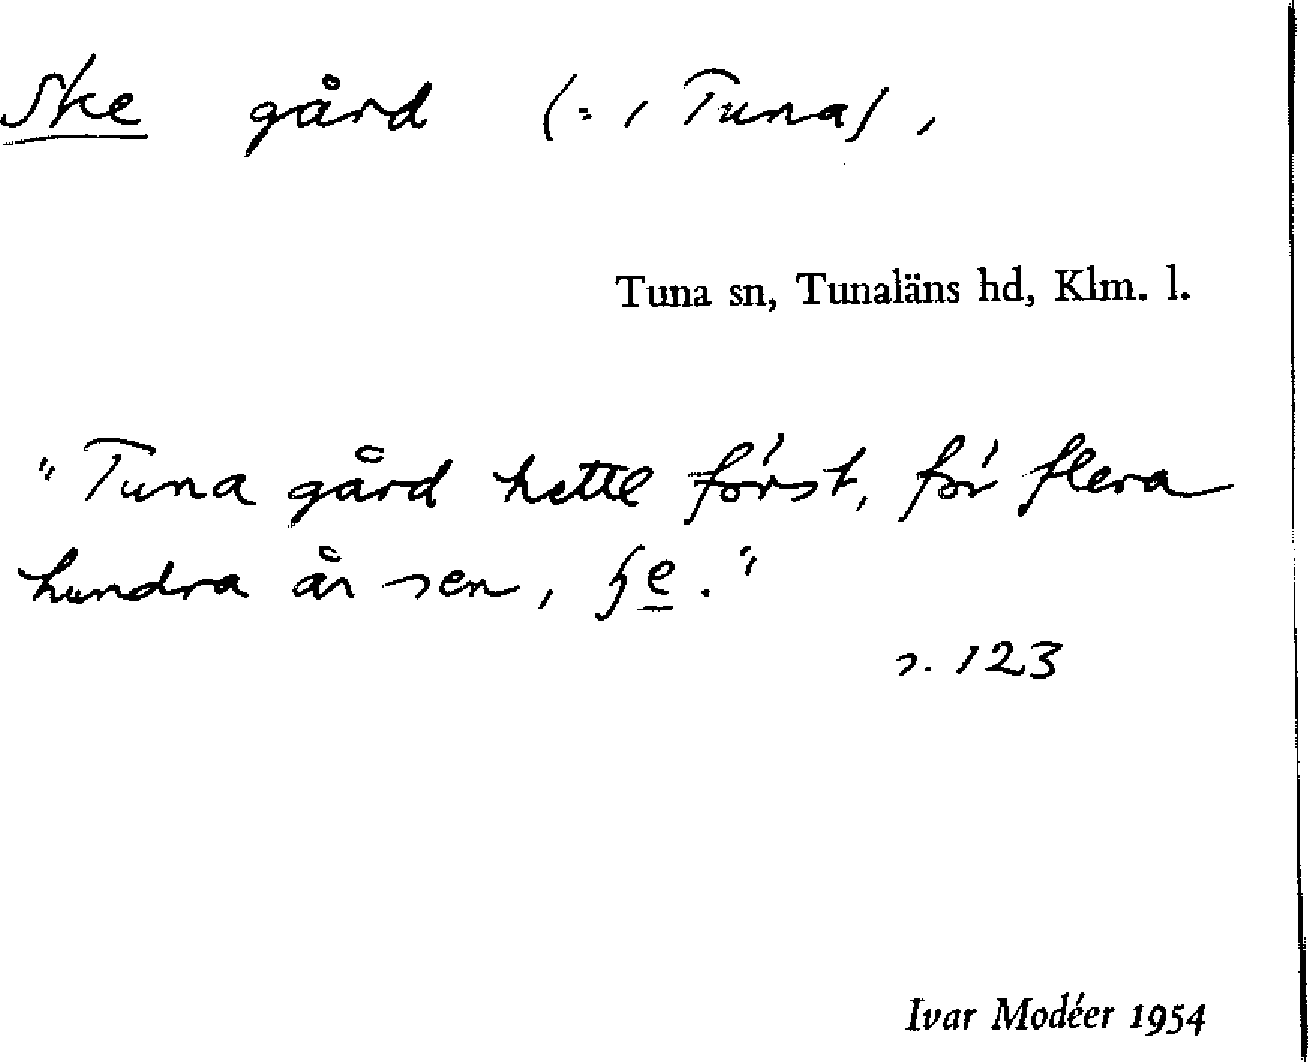 Ske gård (= 1 Tuna),
Tuna sn, Tunaläns hd, Klm. l.
"Tuna gård hette först, för flera
hundra år sen, ɧe."
s. 123
Ivar Modéer 1954